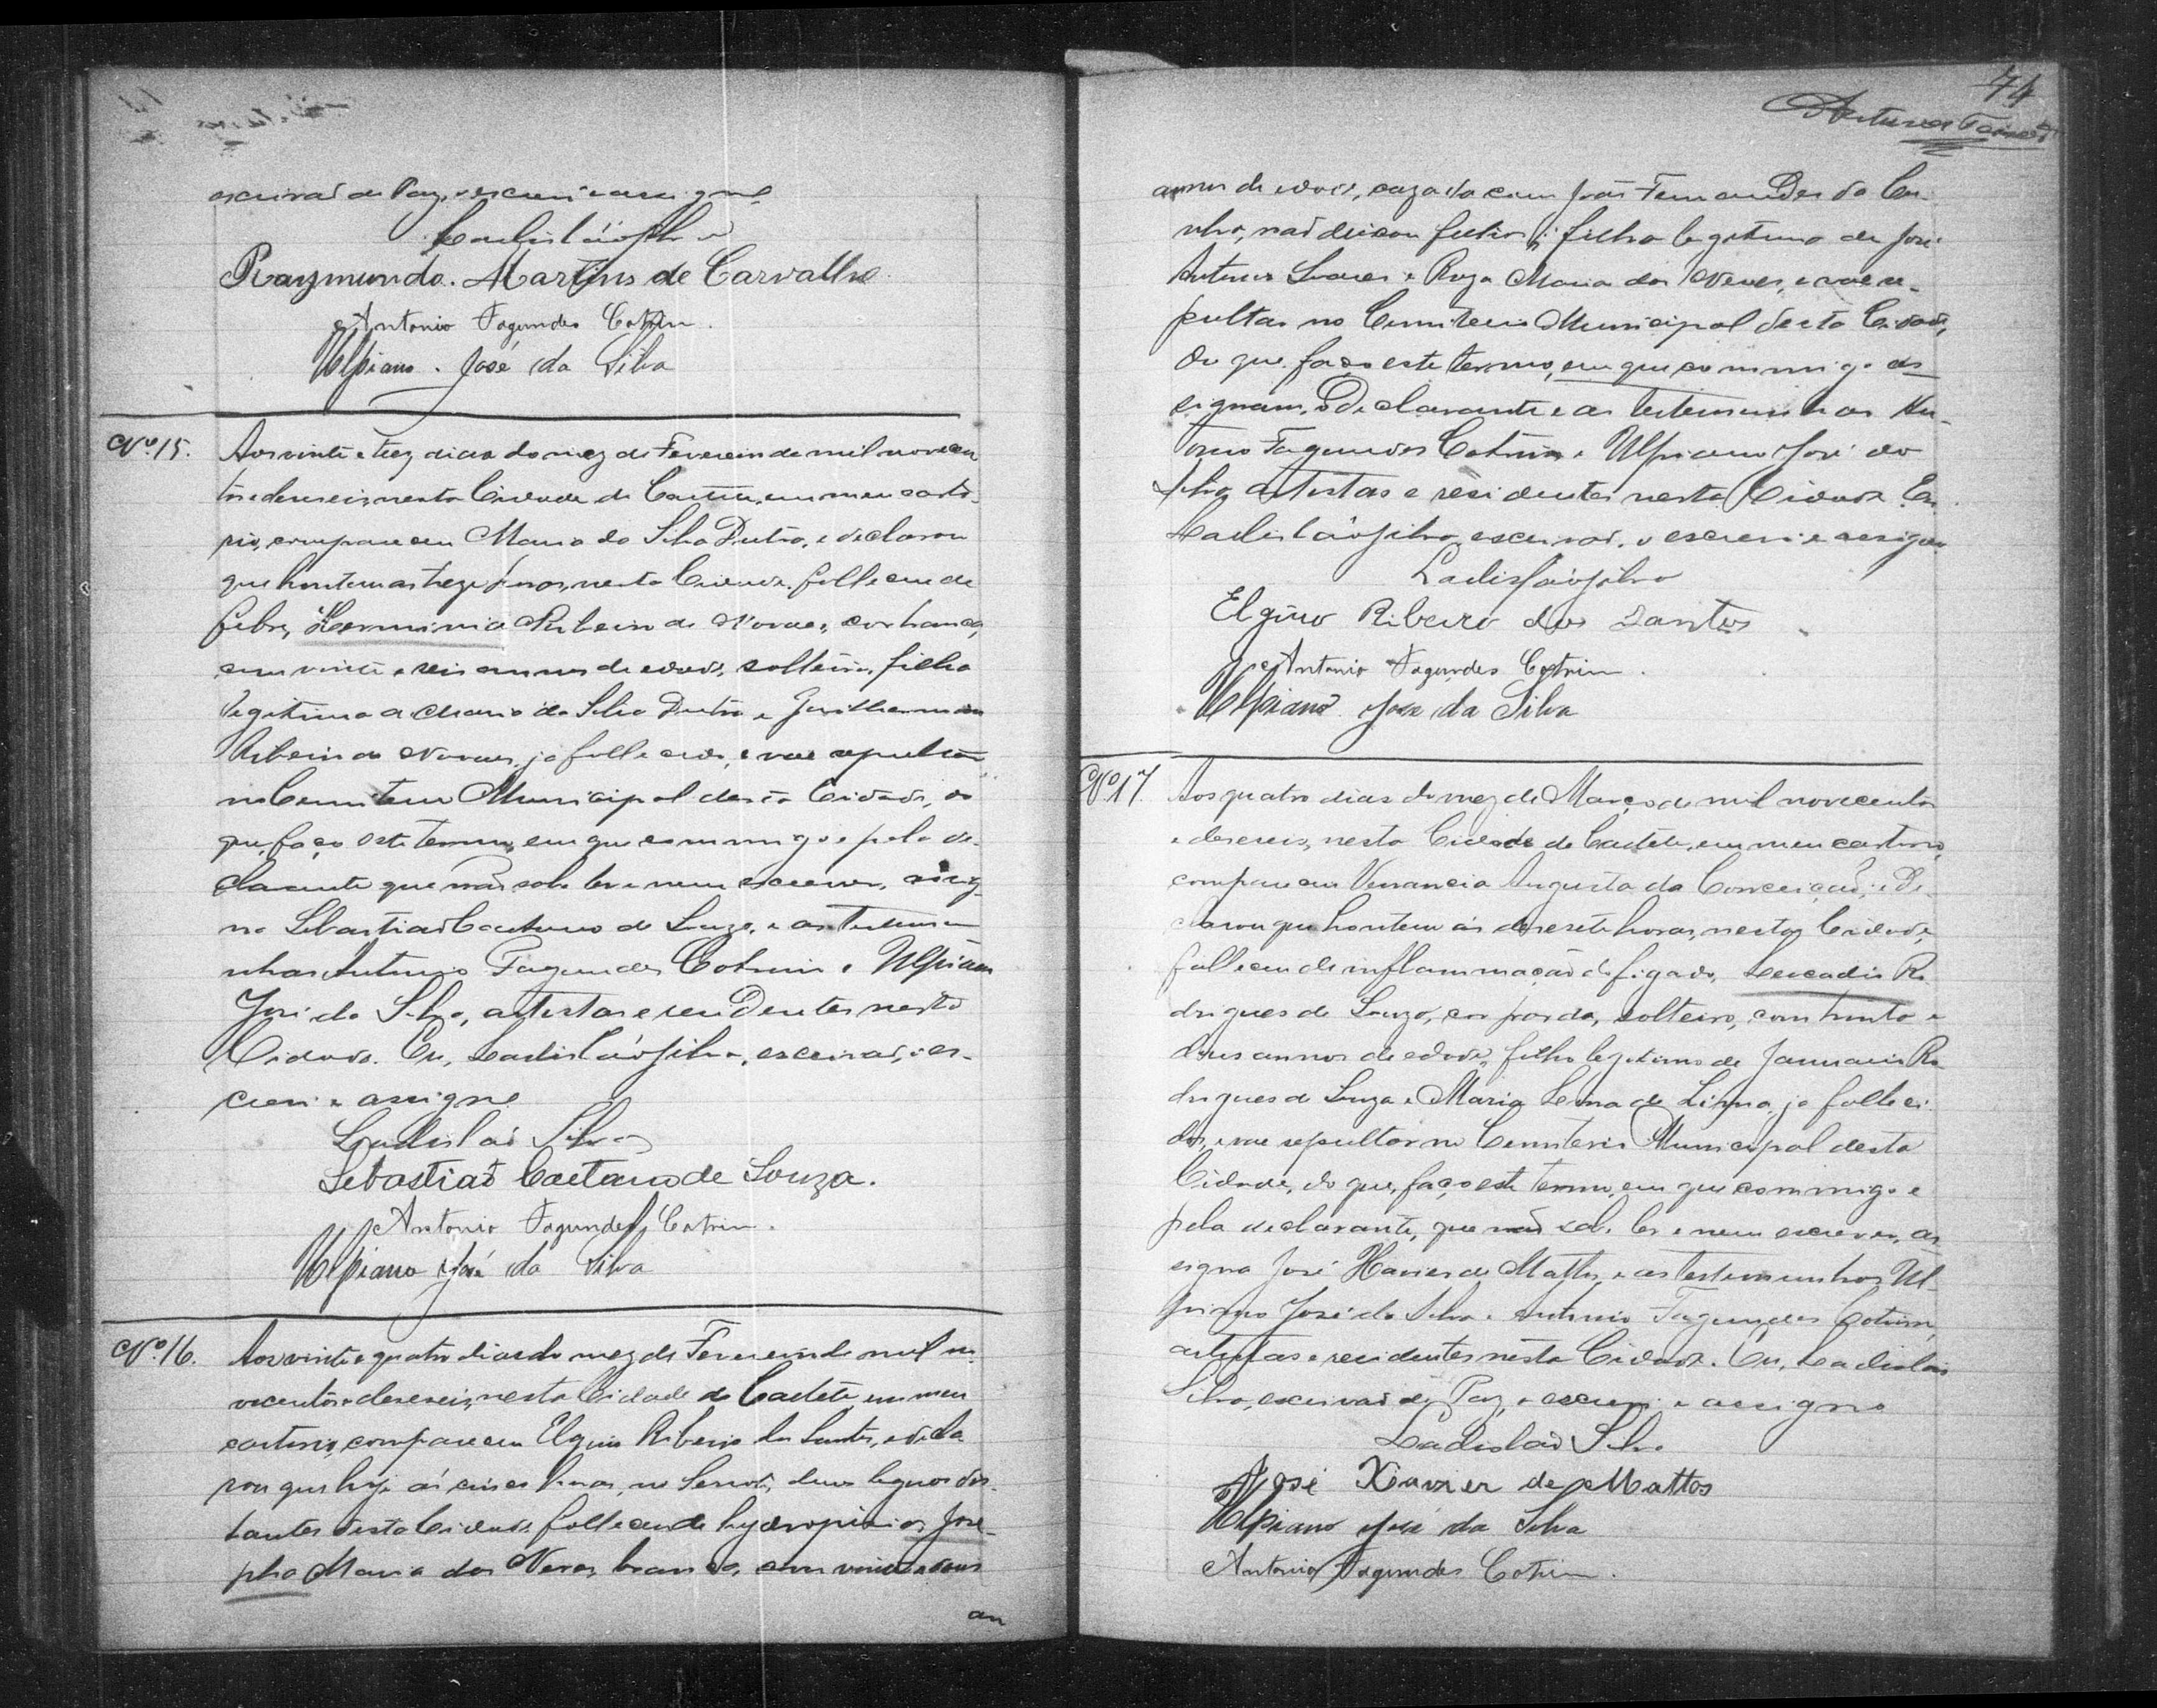 escrivaõ de Paz, o escrevi e assigno
Ladisláo Silva
Raymundo. Martins de Carvalho
Antonio Fagundes Cotrim.
Ulpiano. José da Silva
Nº 15. Aos vinte e trez dias do mez de Fevereiro de mil novecen
tos e deseseis, nesta Cidade de Caeteté, em meu carto-
rio, compareceu Maria da Silva Dutra, e declarou
que hontem as treze horas, nesta Cidade, falleceu de
febre, Herminia Ribeiro de Novaes, cor branca,
com vinte e seis annos de edade, solteira, filha
legitima de Maria da Silva Dutra e Guilhermino
Ribeiro de Novaes, ja fallecido, e vae sepultar
no Cemiterio Municipal desta Cidade, do
que, faço este termo, em que commigo e pela de-
clarante que não sabe ler e nem escrever, assig-
na Sebastiaõ Caetano de Souza, e as testemu
nhas Antonio Fagundes Cotrim e Ulpiano
José da Silva, artistas e residentes nesta
Cidade. Eu, Ladisláo Silva, escrivaõ, o es-
crevi e assigno
Ladisláo Silva
Sebastiaõ Caetano de Souza.
Antonio Fagundes Cotrim.
Ulpiano José da Silva
Nº 16. Aos vinte e quatro dias do mez de Fevereiro de mil no-
vecentos e deseseis, nesta Cidade de Caeteté, em meu
cartorio, compareceu Elgino Ribeiro dos Santos, e decla
rou que hoje ás cinco horas, no Serrote, duas leguas dis-
tantes desta Cidade, falleceu de hydropisia, Jose-
pha Maria das Neves, branca, com vinte e dous
an
74
annos de edade, cazada com João Fernandes da Cu-
nha, naõ deixou filhos; filha legitima de José
Antonio Soares e Roza Maria das Neves, e vae se-
pultar no Cemiterio Municipal desta Cidade,
do que, faço este termo, em que commigo as
signam, o Declarante e as testemunhas An-
tonio Fagundes Cotrim e Ulpiano José da
Silva, artistas e residentes nesta Cidade. Eu,
Ladisláo Silva, escrivaõ, o escrevi e assigno
Ladisláo Silva
Elgino Ribeiro dos Santos
Antonio Fagundes Cotrim.
Ulpiano José da Silva
Nº 17. Aos quatro dias do mez de Março de mil novecentos
e deseseis, nesta Cidade de Caeteté, em meu cartorio,
compareceu Venancia Augusta da Conceição, e de-
clarou que hontem ás desesete horas, nesta Cidade,
falleceu de inflammaçaõ do figado, Leocadio Ro
drigues de Souza, cor parda, solteiro, com trinta e
dous annos de edade, filho legitimo de Januario Ro
drigues de Souza e Maria Lema de Lima, ja falleci-
dos, e vae sepultar no Cemiterio Municipal desta
Cidade, do que, faço este termo, em que commigo e
pela declarante, que naõ sabe ler e nem escrever, as
signa José Xavier de Mattos, e as testemunhas Ul-
piano José da Silva e Antonio Fagundes Cotrim,
artistas e residentes nesta Cidade. Eu, Ladisláo
Silva, escrivaõ de Paz, o escrevi e assigno
Ladisláo Silva
José Xavier de Mattos
Ulpiano José da Silva
Antonio Fagundes Cotrim.